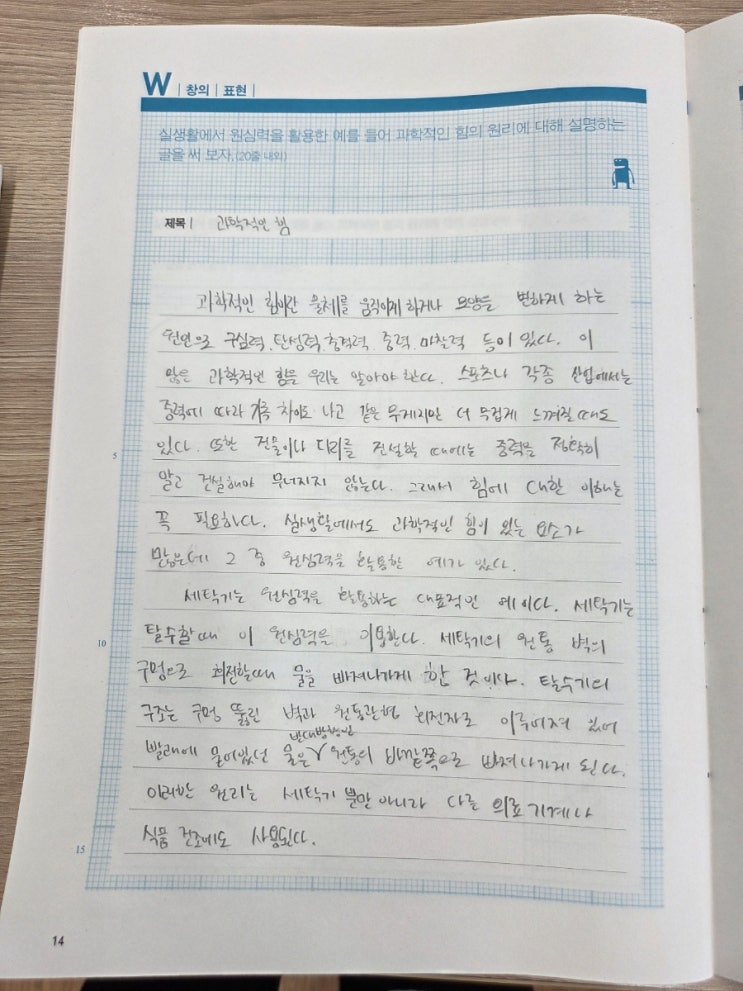 W | 창의 | 표현 |
실생활에서 원심력을 활용한 예를 들어 과학적인 힘의 원리에 대해 설명하는
글을 써 보자.(20줄 내외)
제목 | 과학적인 힘
과학적인 힘이란 물체를 움직이게 하거나 모양을 변하게 하는
원인으로 구심력, 탄성력, 충격력, 중력, 마찰력 등이 있다. 이
많은 과학적인 힘을 우리는 알아야 한다. 스포츠나 각종 산업에서는
중력에 따라 기록 차이도 나고 같은 무게지만 더 무겁게 느껴질 때도
5 있다. 또한 건물이나 다리를 건설할 때에는 중력을 정확히
알고 건설해야 무너지지 않는다. 그래서 힘에 대한 이해는
꼭 필요하다. 실생활에서도 과학적인 힘이 있는 요소가
많은데 그 중 원심력을 활용한 예가 있다.
세탁기는 원심력을 활용하는 대표적인 예이다. 세탁기는
10 탈수할때 이 원심력을 이용한다. 세탁기의 원통 벽의
구멍으로 회전할때 물을 빠져나가게 한 것이다. 탈수기의
구조는 구멍 뚫린 벽과 원통관형 회전자로 이루어져 있어
반대방향인
빨래에 물어있던 물은 원통의 바깥쪽으로 빠져나가게 된다.
이러한 원리는 세탁기 뿐만 아니라 다른 의료 기계나
15 식품 건조에도 사용된다.
14